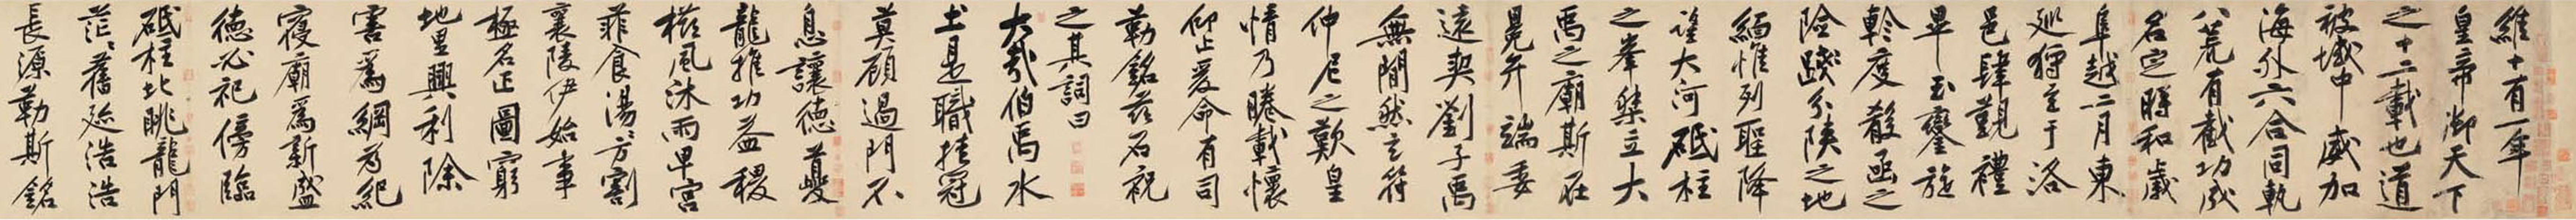 維十有一年
皇帝御天下
之十二載也道
被域中威加
海外六合同軌
八荒有截功成
名定時和歲
阜越二月東
巡狩至于洛
邑肆覲禮
畢玉鑾旋
軫度殽函之
險踐分陝之地
緬惟列聖降
望大河砥柱
之峯桀立大
禹之廟斯在
冕弁端委
遠契劉子禹
無間然玄符
仲尼之歎皇
情乃睠載懷
仰止爰命有司
勒銘茲石祝
之其詞曰
大哉伯禹水
土是職挂冠
莫顧過門不
息讓德夔
龍推功益稷
櫛風沐雨卑宮
菲食湯〻方割
襄陵伊始事
極名正圖窮
地里興利除
害爲綱爲紀
寢廟爲新盛
德必祀傍臨
砥柱北眺龍門
茫〻舊迹浩浩
長源勒斯銘